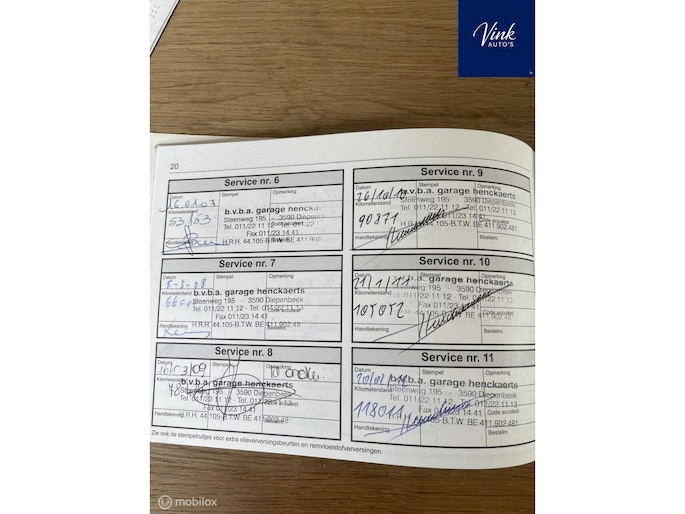 Vink
AUTO'S
20
Service nr. 6
Datum Stempel Opmerking
16.01.07
b.v.b.a. garage henckaerts
Kilometerstand
Steenweg 195 - 3590 Diepenbeek
53/53
Tel. 011/22 11 12 - Tel. 011/22
Fax 011/23 14 41
Handtekening
H.R.H. 44.105-B.T.W. BE 411.902
Service nr. 7
Datum Stempel Opmerking
5-3-08
b.v.b.a. garage henckaerts
Kilometerstand
Steenweg 195 - 3590 Diepenbeek
Tel. 011/22 11 12 - Tel. 011/22 11 13
Fax 011/23 14 41
Handtekening
H.R.H. 44.105-B.T.W. BE 411.902.48
Service nr. 8
Datum Stempel Opmerking
/03/09
b.v.b.a. garage henckaerts
Kilometerstand
195 - 3590 Diepenbeek
Tel. 011/22 11 12 - Tel. 011/22 11 13
Fax 011/23 14 41
Handtekening
H.R.H. 44.105-B.T.W. BE 411.902.481
Service nr. 9
Datum Stempel Opmerking
26/10/10
b.v.b.a. garage henckaerts
Kilometerstand
Steenweg 195 - 3590 Diepenbeek
90871
Tel. 011/22 11 12 - Tel. 011/22 11 13
Fax 011/23 14 41
Handtekening
H.R.H. 44.105-B.T.W. BE 411.902.48
Bestelnr.
Service nr. 10
Datum Stempel Opmerking
b.v.b.a. garage henckaerts
Kilometerstand
Steenweg 195 - 3590 Diepenbeek
Tel. 011/22 11 12 - Tel. 011/22 11 13
Fax 011/23 14 41 Code accutest
Handtekening
H.R.H. 44.105-B.T.W. BE 411.902.48
Bestelnr.
Service nr. 11
Datum Stempel Opmerking
b.v.b.a. garage henckaerts
Kilometerstand
Steenweg 195 - 3590 Diepenbeek
118011
Tel. 011/22 11 12 - Tel. 011/22 11 13
Fax 011/23 14 41 Code accutest
Handtekening
H.R.H. 44.105-B.T.W. BE 411.902.481
Bestelnr.
Zie ook de stempelruitjes voor extra olieverversingsbeurten en remvloeistofverversingen.
mobilox